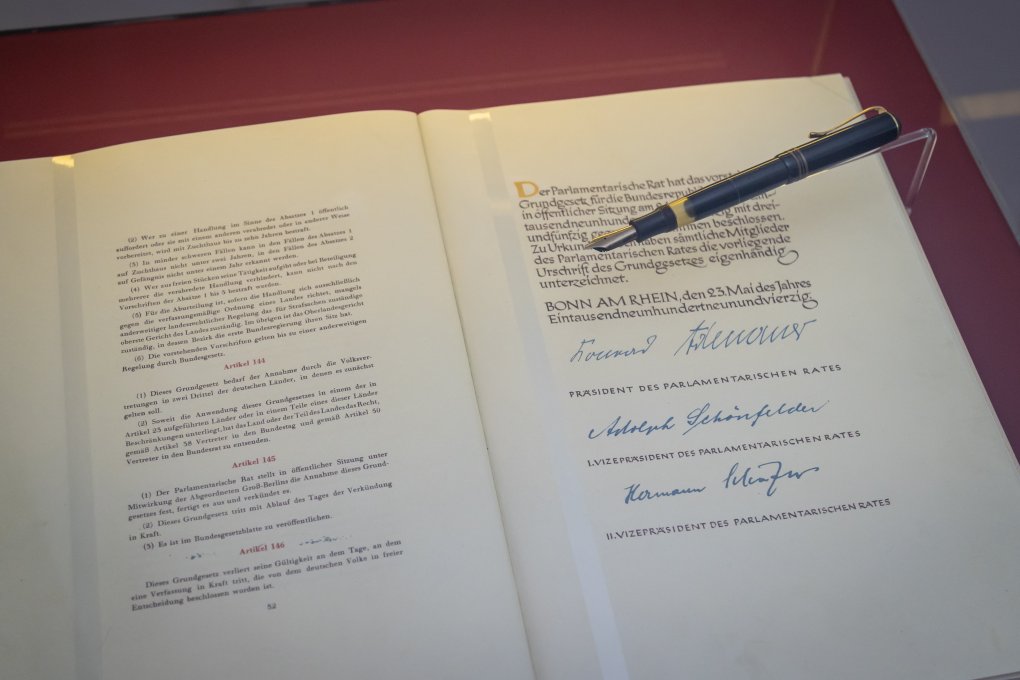 (2) Wer zu einer Handlung im Sinne des Absatzes 1 öffentlich
auffordert oder sie mit einem anderen verabredet oder in anderer Weise
vorbereitet, wird mit Zuchthaus bis zu zehn Jahren bestraft.
(3) In minder schweren Fällen kann in den Fällen des Absatzes 1
auf Zuchthaus nicht unter zwei Jahren, in den Fällen des Absatzes 2
auf Gefängnis nicht unter einem Jahr erkannt werden.
(4) Wer aus freien Stücken seine Tätigkeit aufgibt oder bei Beteiligung
mehrerer die verabredete Handlung verhindert, kann nicht nach den
Vorschriften der Absätze 1 bis 3 bestraft werden.
(5) Für die Aburteilung ist, sofern die Handlung sich ausschließlich
gegen die verfassungsmäßige Ordnung eines Landes richtet, mangels
anderweitiger landesrechtlicher Regelung das für Strafsachen zuständige
oberste Gericht des Landes zuständig. Im übrigen ist das Oberlandesgericht
zuständig, in dessen Bezirk die erste Bundesregierung ihren Sitz hat.
(6) Die vorstehenden Vorschriften gelten bis zu einer anderweitigen
Regelung durch Bundesgesetz.
Artikel 144
(1) Dieses Grundgesetz bedarf der Annahme durch die Volksver-
tretungen in zwei Drittel der deutschen Länder, in denen es zunächst
gelten soll.
(2) Soweit die Anwendung dieses Grundgesetzes in einem der in
Artikel 23 aufgeführten Länder oder in einem Teile eines dieser Länder
Beschränkungen unterliegt, hat das Land oder der Teil des Landes das Recht,
gemäß Artikel 38 Vertreter in den Bundestag und gemäß Artikel 50
Vertreter in den Bundesrat zu entsenden.
Artikel 145
(1) Der Parlamentarische Rat stellt in öffentlicher Sitzung unter
Mitwirkung der Abgeordneten Groß-Berlins die Annahme dieses Grund-
gesetzes fest, fertigt es aus und verkündet es.
(2) Dieses Grundgesetz tritt mit Ablauf des Tages der Verkündung
in Kraft.
(3) Es ist im Bundesgesetzblatte zu veröffentlichen.
Artikel 146
Dieses Grundgesetz verliert seine Gültigkeit an dem Tage, an dem
eine Verfassung in Kraft tritt, die von dem deutschen Volke in freier
Entscheidung beschlossen worden ist.
52
Der Parlamentarische Rat hat das
Grundgesetz für die
in öffentlicher Sitzung am mit drei-
undfünfzig beschlossen.
Zu haben sämtliche Mitglieder
des Parlamentarischen Rates die vorliegende
Urschrift des Grundgesetzes eigenhändig
unterzeichnet.
BONN AM RHEIN, den 23. Mai des Jahres
Eintausendneunhundertneunundvierzig.
Konrad Adenauer
PRÄSIDENT DES PARLAMENTARISCHEN RATES
Adolph Schönfelder
I. VIZEPRÄSIDENT DES PARLAMENTARISCHEN RATES
Hermann Schäfer
II. VIZEPRÄSIDENT DES PARLAMENTARISCHEN RATES